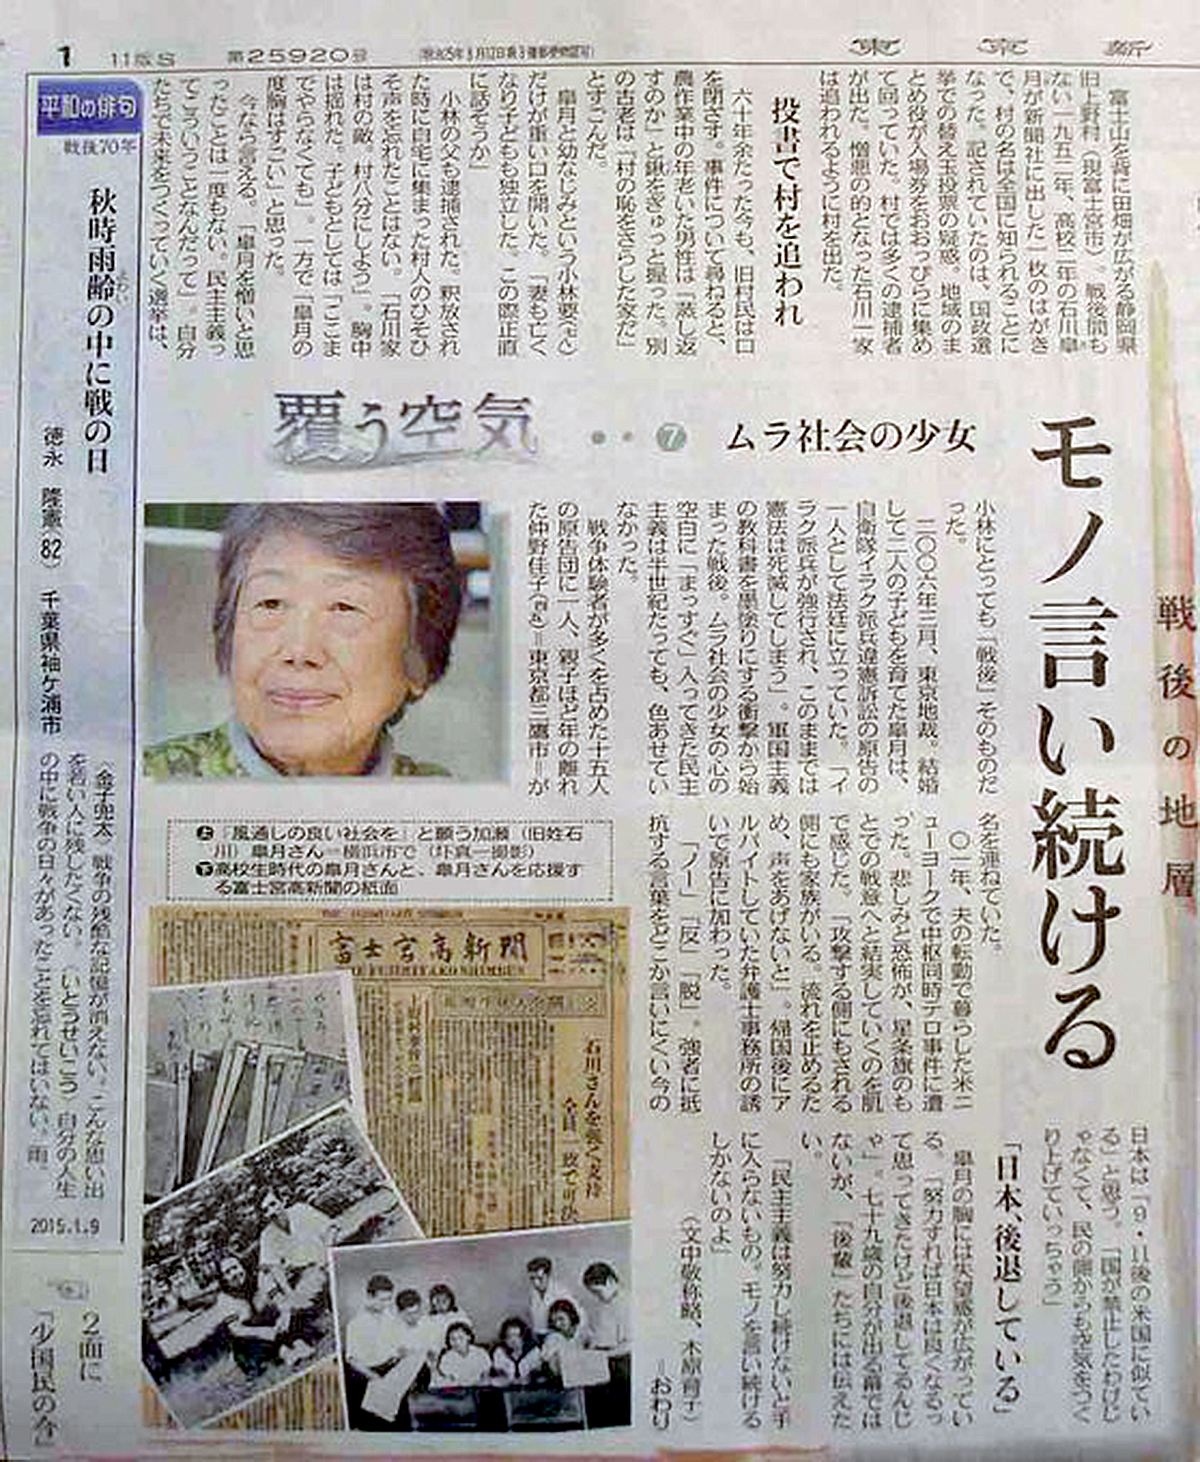 1 11版S 第25920号 東京新
富士山を背に田畑が広がる静岡県
旧上野村（現富士宮市）。戦後間も
ない一九五二年、高校二年の石川皐
月が新聞社に出した一枚のはがき
で、村の名は全国に知られることに
なった。記されていたのは、国政選
挙での替え玉投票の疑惑。地域のま
とめ役が入場券をおおっぴらに集め
て回っていた。村では多くの逮捕者
が出た。憎悪の的となった石川一家
は追われるように村を出た。
投書で村を追われ
六十年余たった今も、旧村民は口
を閉ざす。事件について尋ねると、
農作業中の年老いた男性は「蒸し返
すのか」と鍬をぎゅっと握った。別
の古老は「村の恥をさらした家だ」
とすごんだ。
皐月と幼なじみという小林要
だけが重い口を開いた。「妻も亡く
なり子どもも独立した。この際正直
に話そうか」
小林の父も逮捕された。釈放され
た時に自宅に集まった村人のひそひ
そ声を忘れたことはない。「石川家
は村の敵。村八分にしよう」。胸中
は揺れた。子どもとしては「ここま
でやらなくても」。一方で「皐月の
度胸はすごい」と思った。
今なら言える。「皐月を憎いと思
ったことは一度もない。民主主義っ
てこういうことなんだって」。自分
たちで未来をつくっていく選挙は、
戦後の地層
モノ言い続ける
覆う空気 ⑦ ムラ社会の少女
小林にとっても「戦後」そのものだ
った。
二〇〇六年三月、東京地裁。結婚
して二人の子どもを育てた皐月は、
自衛隊イラク派兵違憲訴訟の原告の
一人として法廷に立っていた。「イ
ラク派兵が強行され、このままでは
憲法は死滅してしまう」。軍国主義
の教科書を墨塗りにする衝撃から始
まった戦後。ムラ社会の少女の心の
空白に「まっすぐ」入ってきた民主
主義は半世紀たっても、色あせてい
なかった。
戦争体験者が多くを占めた十五人
の原告団に一人、親子ほど年の離れ
た仲野佳子＝東京都三鷹市＝が
名を連ねていた。
〇一年、夫の転勤で暮らした米ニ
ューヨークで中枢同時テロ事件に遭
った。悲しみと恐怖が、星条旗のも
とでの戦意へと結実していくのを肌
で感じた。「攻撃する側にもされる
側にも家族がいる。流れを止めるた
め、声をあげないと」。帰国後にア
ルバイトしていた弁護士事務所の誘
いで原告に加わった。
「ノー」「反」「脱」。強者に抵
抗する言葉をどこか言いにくい今の
日本は「9・11後の米国に似てい
る」と思う。「国が禁止したわけじ
ゃなくて、民の側からも空気をつく
り上げていっちゃう」
「日本、後退している」
皐月の胸には失望感が広がってい
る。「努力すれば日本は良くなるっ
て思ってきたけど後退してるんじ
ゃ」。七十九歳の自分が出る幕では
ないが、「後輩」たちには伝えた
い。
「民主主義は努力し続けないと手
に入らないもの。モノを言い続ける
しかないのよ」
（文中敬称略、木原育子）
＝おわり
㊤「風通しの良い社会を」と願う加瀬（旧姓石
川）皐月さん＝横浜市で（圷真一撮影）
㊦高校生時代の皐月さんと、皐月さんを応援す
る富士宮高新聞の紙面
富士宮高新聞
石川さんを強く支持
全員一致で可決
平和の俳句
戦後70年
秋時雨齢の中に戦の日
よわい
徳永 隆憲（82） 千葉県袖ケ浦市
〈金子兜太〉戦争の残酷な記憶が消えない。こんな思い出
を若い人に残したくない。〈いとうせいこう〉自分の人生
の中に戦争の日々があったことを忘れてはいない、雨。
2015.1.9
2面に
「少国民の今」